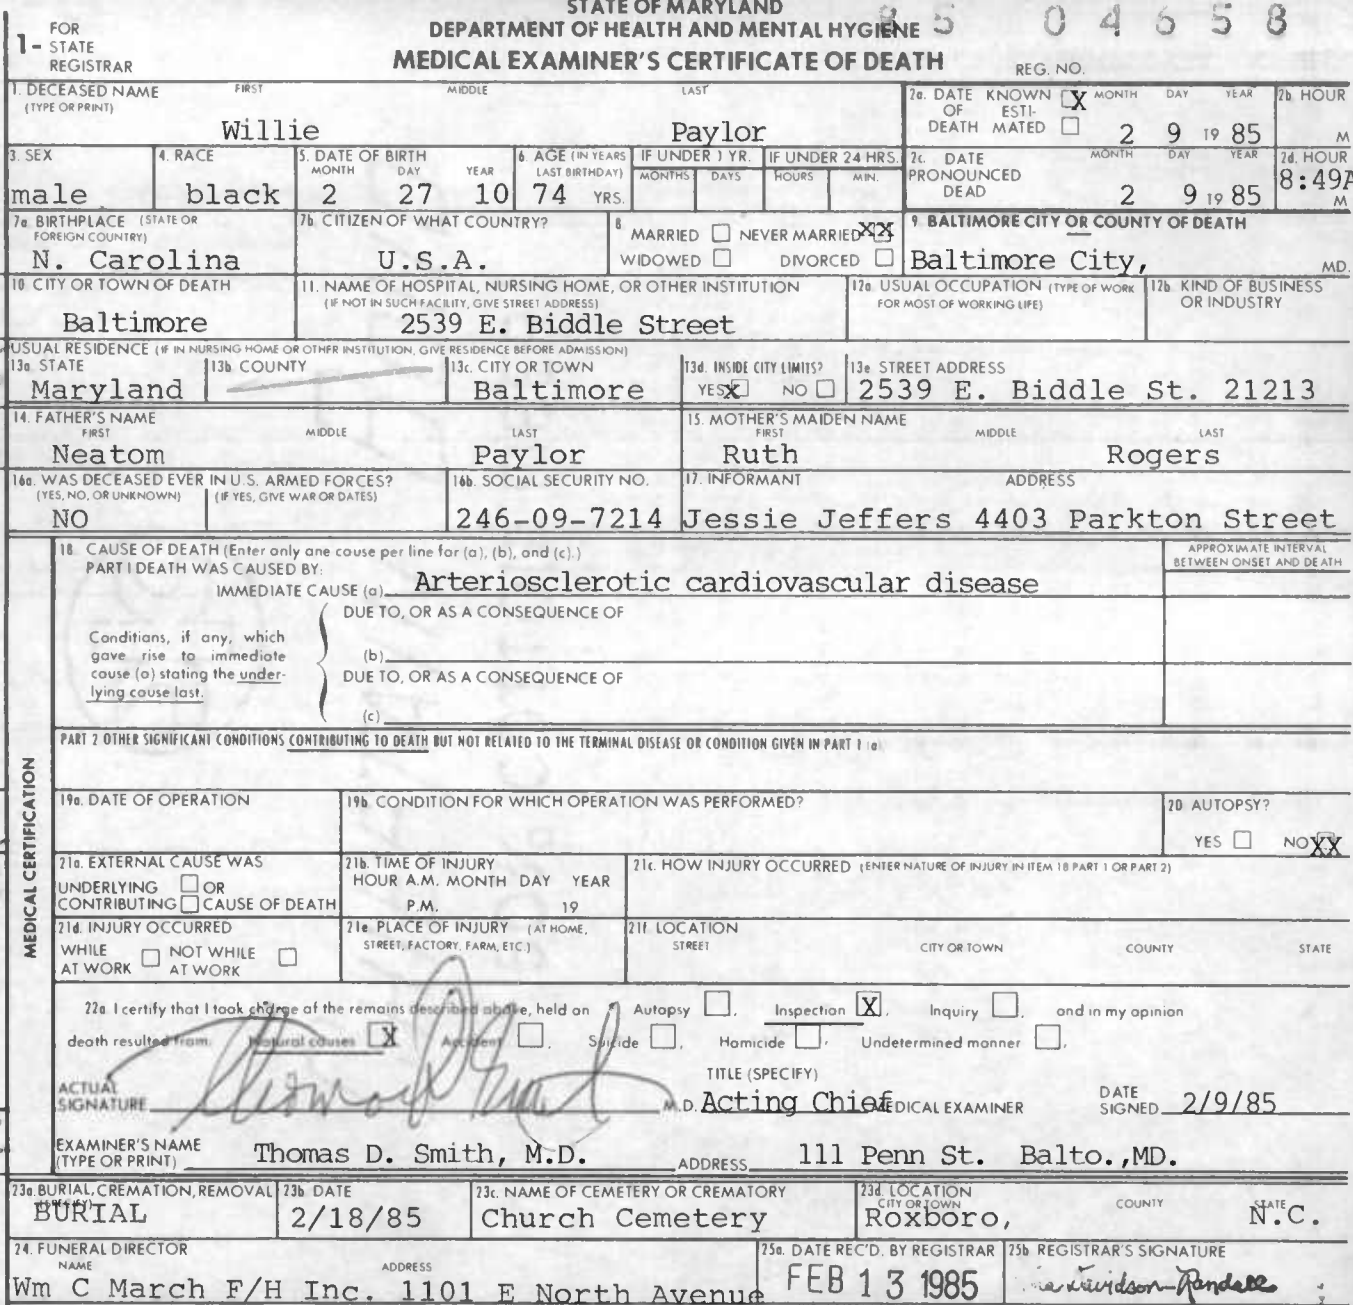 STATE OF MARYLAND
DEPARTMENT OF HEALTH AND MENTAL HYGIENE
MEDICAL EXAMINER'S CERTIFICATE OF DEATH
85 04658
REG. NO.
1- FOR STATE REGISTRAR
1. DECEASED NAME (TYPE OR PRINT) FIRST MIDDLE LAST
Willie Paylor
2a. DATE OF DEATH KNOWN X ESTIMATED MONTH DAY YEAR
2 9 19 85
2b. HOUR M
3. SEX
male
4. RACE
black
5. DATE OF BIRTH MONTH DAY YEAR
2 27 10
6. AGE (IN YEARS LAST BIRTHDAY)
74 YRS.
IF UNDER 1 YR. MONTHS DAYS
IF UNDER 24 HRS. HOURS MIN.
2c. DATE PRONOUNCED DEAD MONTH DAY YEAR
2 9 19 85
2d. HOUR
8:49A M
7a. BIRTHPLACE (STATE OR FOREIGN COUNTRY)
N. Carolina
7b. CITIZEN OF WHAT COUNTRY?
U.S.A.
8 MARRIED NEVER MARRIED XX
WIDOWED DIVORCED
9. BALTIMORE CITY OR COUNTY OF DEATH
Baltimore City, MD.
10. CITY OR TOWN OF DEATH
Baltimore
11. NAME OF HOSPITAL, NURSING HOME, OR OTHER INSTITUTION
(IF NOT IN SUCH FACILITY, GIVE STREET ADDRESS)
2539 E. Biddle Street
12a. USUAL OCCUPATION (TYPE OF WORK FOR MOST OF WORKING LIFE)
12b. KIND OF BUSINESS OR INDUSTRY
USUAL RESIDENCE (IF IN NURSING HOME OR OTHER INSTITUTION, GIVE RESIDENCE BEFORE ADMISSION)
13a. STATE
Maryland
13b. COUNTY
13c. CITY OR TOWN
Baltimore
13d. INSIDE CITY LIMITS?
YES X NO
13e. STREET ADDRESS
2539 E. Biddle St. 21213
14. FATHER'S NAME FIRST MIDDLE LAST
Neatom Paylor
15. MOTHER'S MAIDEN NAME FIRST MIDDLE LAST
Ruth Rogers
16a. WAS DECEASED EVER IN U.S. ARMED FORCES?
(YES, NO, OR UNKNOWN) (IF YES, GIVE WAR OR DATES)
NO
16b. SOCIAL SECURITY NO.
246-09-7214
17. INFORMANT ADDRESS
Jessie Jeffers 4403 Parkton Street
MEDICAL CERTIFICATION
18. CAUSE OF DEATH (Enter only one cause per line for (a), (b), and (c).)
APPROXIMATE INTERVAL BETWEEN ONSET AND DEATH
PART I DEATH WAS CAUSED BY:
IMMEDIATE CAUSE (a) Arteriosclerotic cardiovascular disease
DUE TO, OR AS A CONSEQUENCE OF
Conditions, if any, which
gave rise to immediate
cause (a) stating the under-
lying cause last.
(b)
DUE TO, OR AS A CONSEQUENCE OF
(c)
PART 2 OTHER SIGNIFICANT CONDITIONS CONTRIBUTING TO DEATH BUT NOT RELATED TO THE TERMINAL DISEASE OR CONDITION GIVEN IN PART 1 (a)
19a. DATE OF OPERATION
19b. CONDITION FOR WHICH OPERATION WAS PERFORMED?
20. AUTOPSY?
YES NO XX
21a. EXTERNAL CAUSE WAS
UNDERLYING OR
CONTRIBUTING CAUSE OF DEATH
21b. TIME OF INJURY
HOUR A.M. MONTH DAY YEAR
P.M. 19
21c. HOW INJURY OCCURRED (ENTER NATURE OF INJURY IN ITEM 18 PART 1 OR PART 2)
21d. INJURY OCCURRED
WHILE AT WORK NOT WHILE AT WORK
21e. PLACE OF INJURY (AT HOME, STREET, FACTORY, FARM, ETC.)
21f. LOCATION
STREET CITY OR TOWN COUNTY STATE
22a. I certify that I took charge of the remains described above, held on Autopsy , Inspection X , Inquiry , and in my opinion
death resulted from: Natural causes X Accident , Suicide , Homicide , Undetermined manner ,
TITLE (SPECIFY)
ACTUAL SIGNATURE Thomas D Smith M.D. Acting Chief MEDICAL EXAMINER DATE SIGNED 2/9/85
EXAMINER'S NAME (TYPE OR PRINT) Thomas D. Smith, M.D. ADDRESS 111 Penn St. Balto.,MD.
23a. BURIAL, CREMATION, REMOVAL
BURIAL
23b. DATE
2/18/85
23c. NAME OF CEMETERY OR CREMATORY
Church Cemetery
23d. LOCATION CITY OR TOWN COUNTY STATE
Roxboro, N.C.
24. FUNERAL DIRECTOR
NAME ADDRESS
Wm C March F/H Inc. 1101 E North Avenue
25a. DATE REC'D. BY REGISTRAR
FEB 13 1985
25b. REGISTRAR'S SIGNATURE
Davidson-Randall